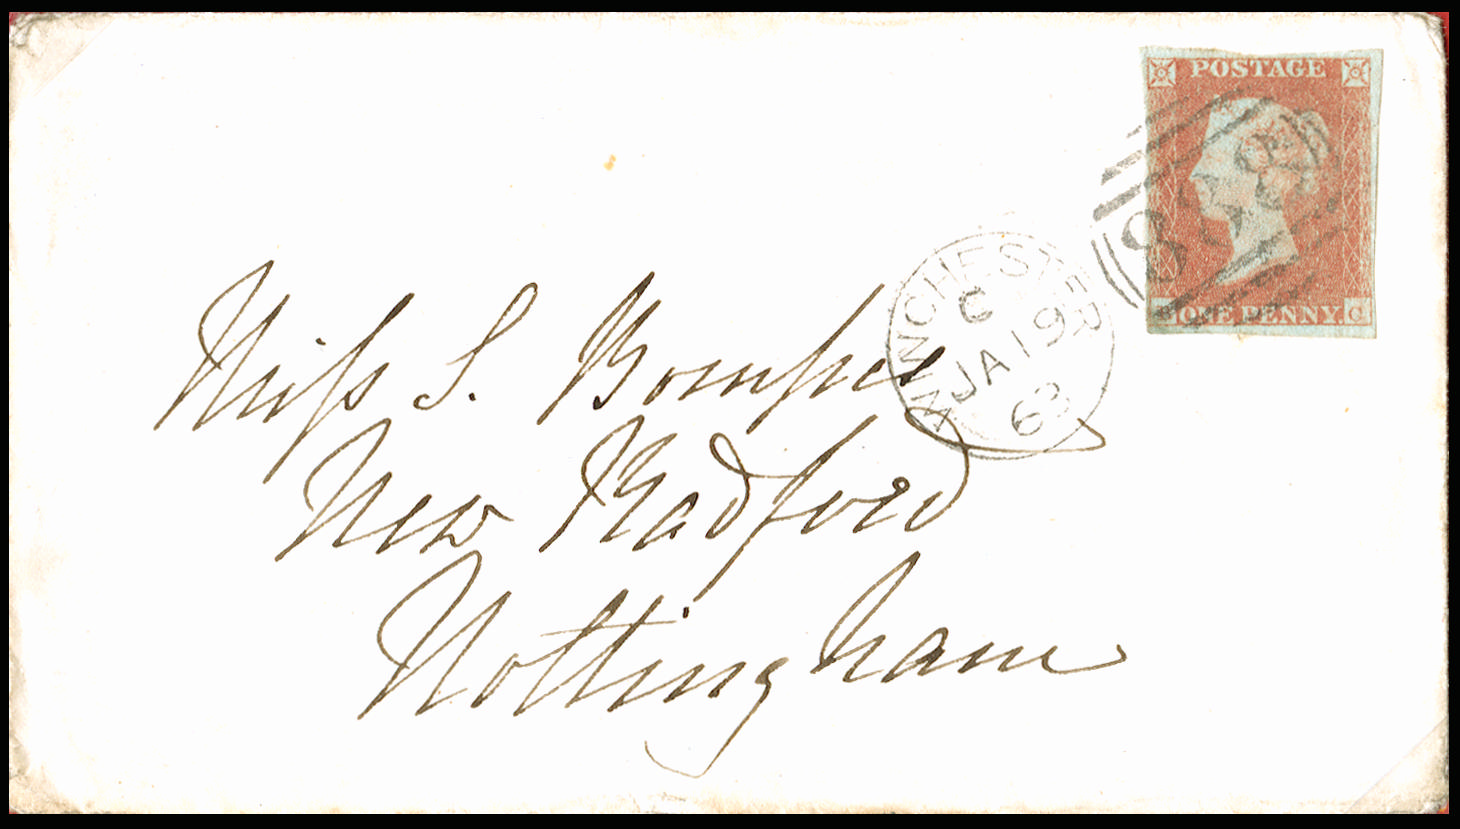 POSTAGE
ONE PENNY C
WINCHESTER
C
JA 19
63
Miſs S.
New Radford
Nottingham